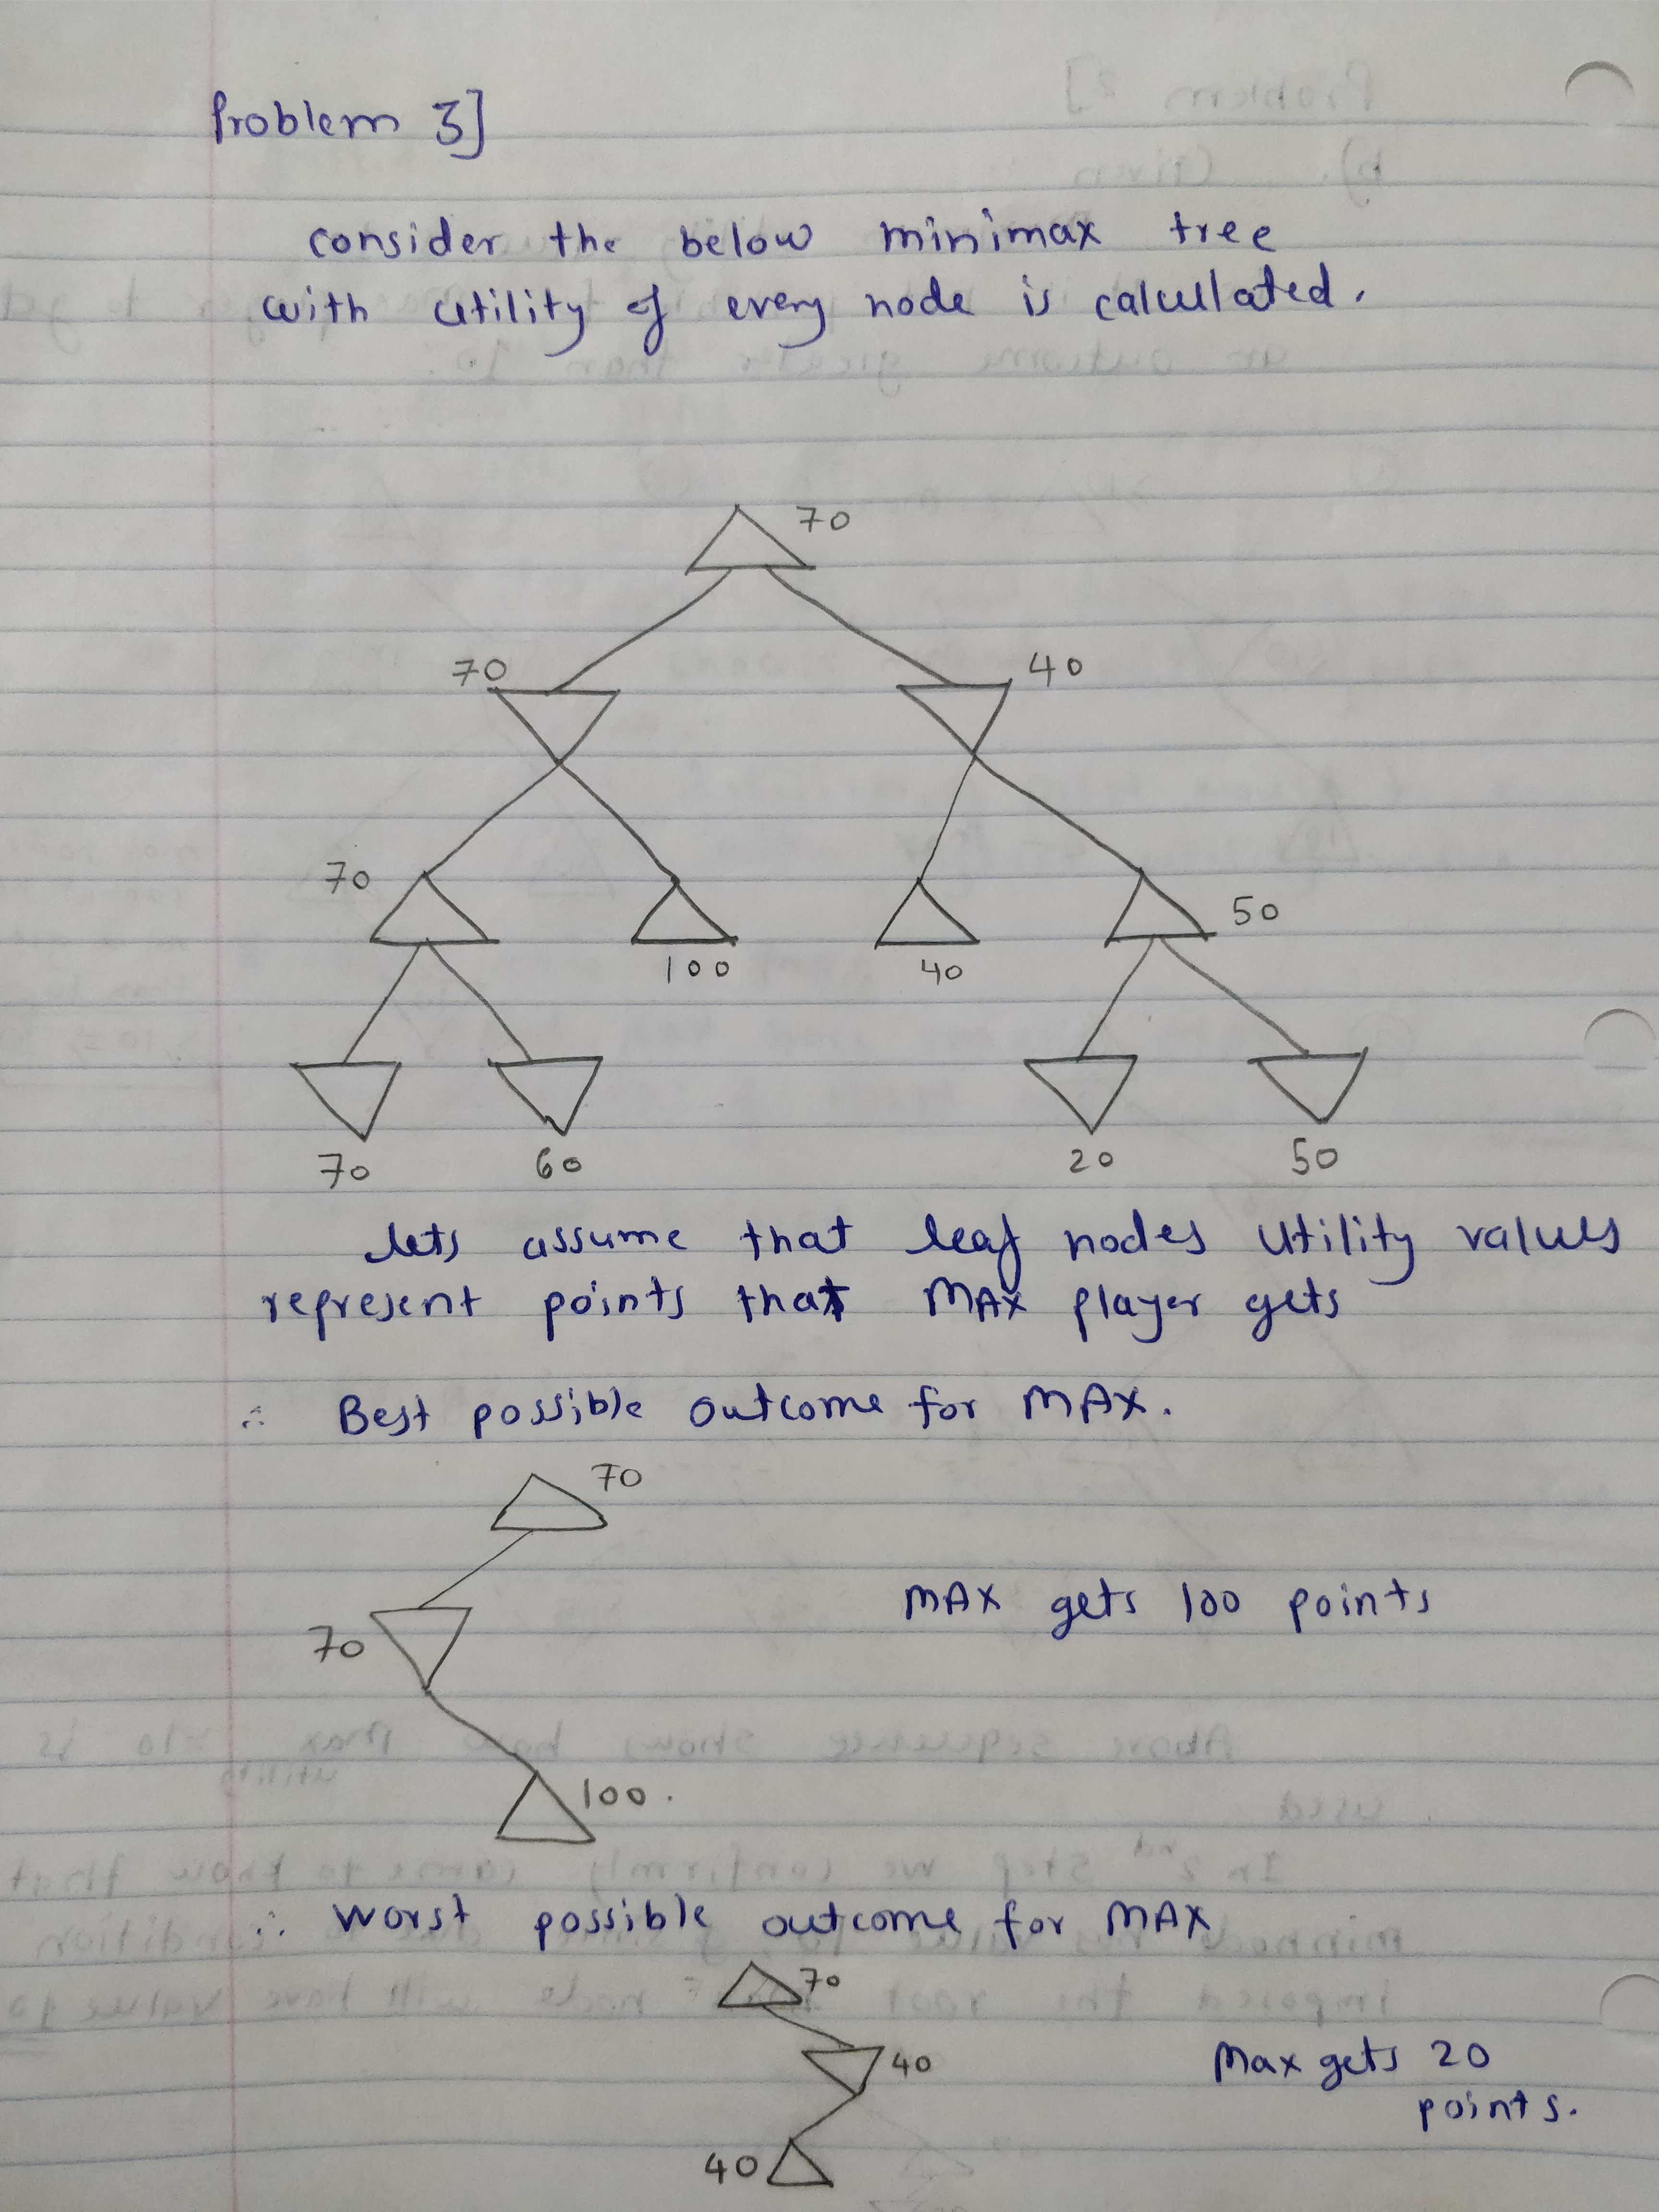 Problem 3]
consider the below minimax tree
with utility of every node is calculated.
70
70 40
70 50
100 40
70 60 20 50
lets assume that leaf nodes utility values
represent points that MAX player gets
∴ Best possible outcome for MAX.
70
MAX gets 100 points
70
100.
∴ worst possible outcome for MAX
70
40
Max gets 20
points.
40